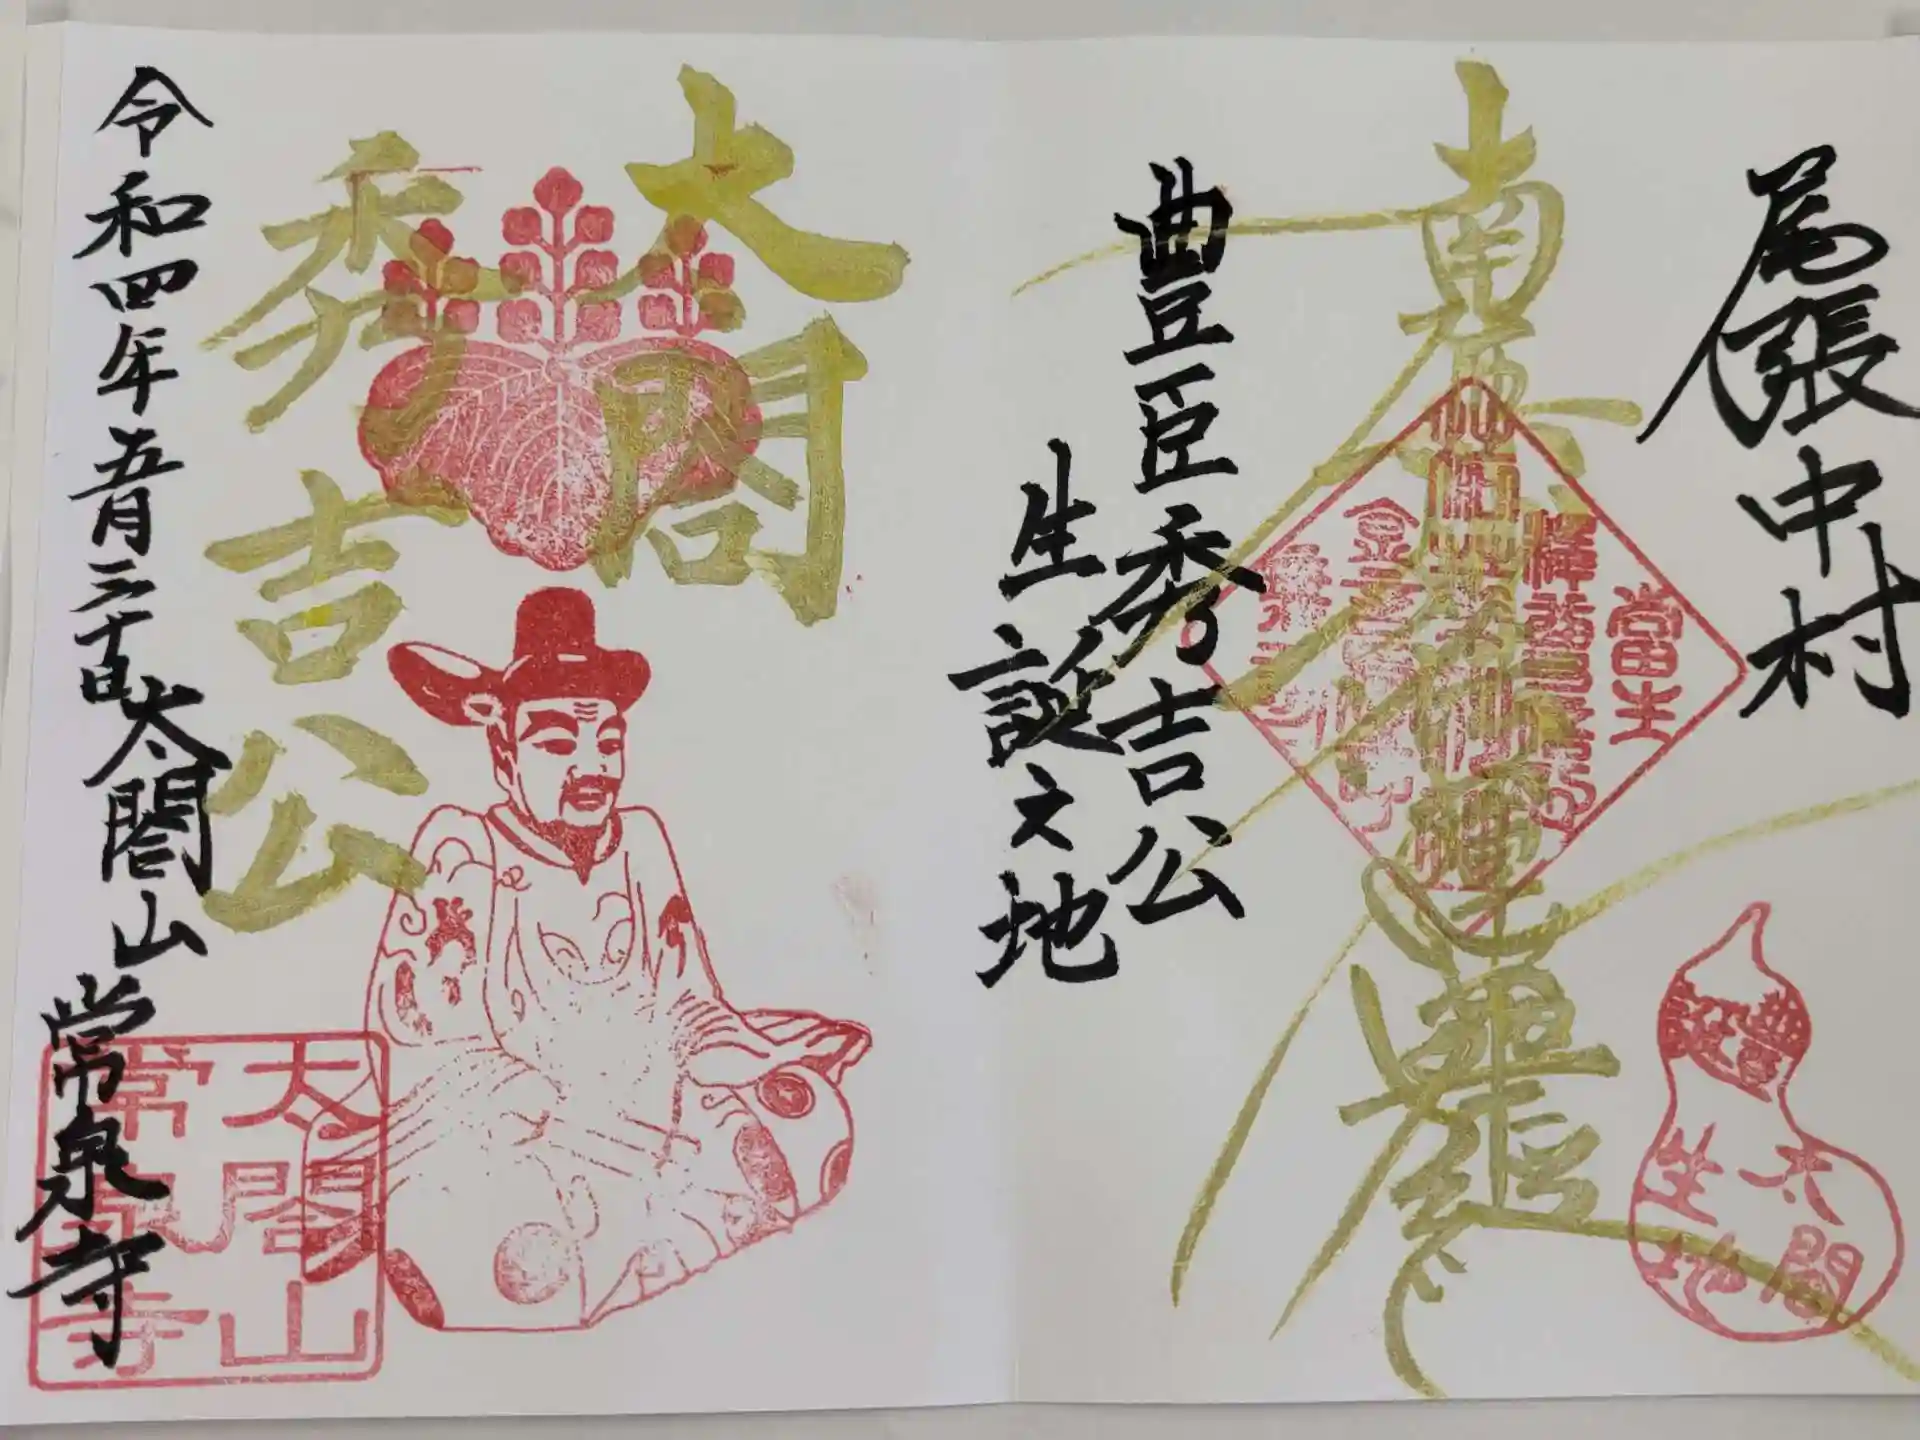 尾張中村
南無妙法蓮華経
豊臣秀吉公
生誕之地
當生
豊誕
太閤
生地
太閤
秀吉公
令和四年五月三十日
太閤山常泉寺
太閤山
常泉寺